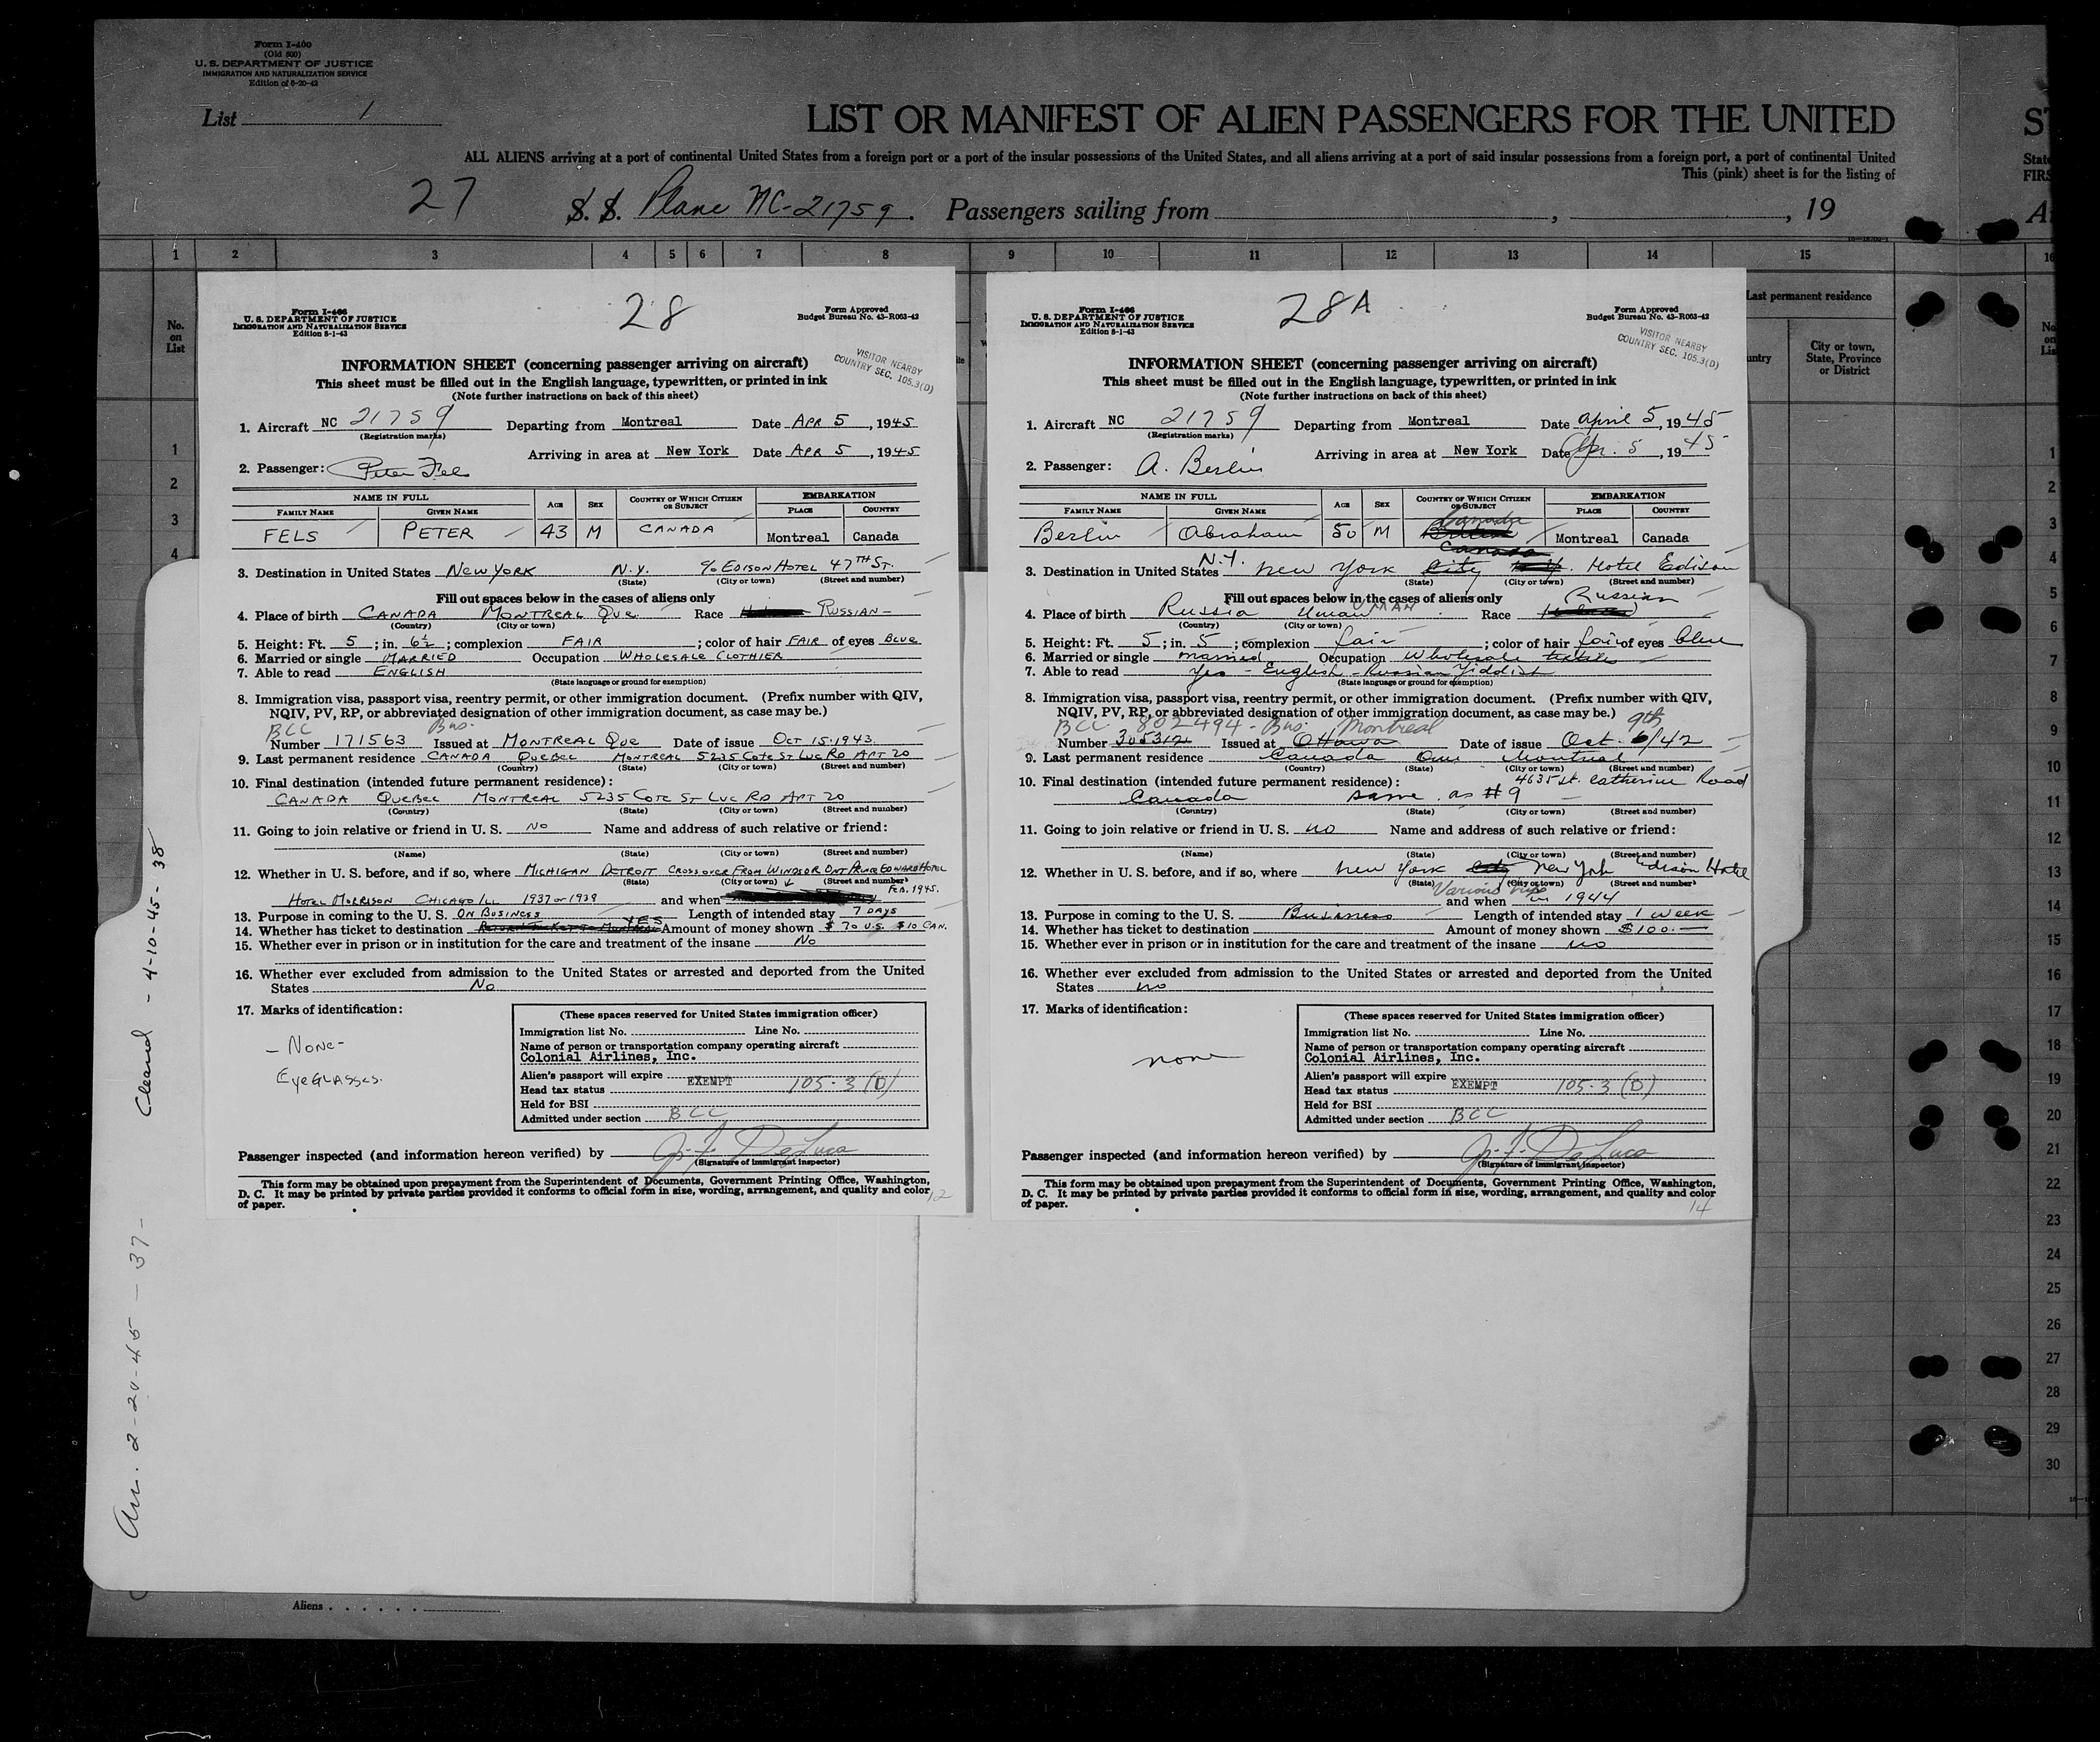 Form I-400
(Old 500)
U. S. DEPARTMENT OF JUSTICE
IMMIGRATION AND NATURALIZATION SERVICE
Edition of 6-20-42
List 1
LIST OR MANIFEST OF ALIEN PASSENGERS FOR THE UNITED
ST
ALL ALIENS arriving at a port of continental United States from a foreign port or a port of the insular possessions of the United States, and all aliens arriving at a port of said insular possessions from a foreign port, a port of continental United
State
This (pink) sheet is for the listing of
FIRS
27 S. S. Plane NC-21759. Passengers sailing from , , 19
1 2 3 4 5 6 7 8 9 10 11 12 13 14 15 16
No. on List
Last permanent residence
City or town, State, Province or District
1
2
3
4
Form I-466
U. S. DEPARTMENT OF JUSTICE
IMMIGRATION AND NATURALIZATION SERVICE
Edition 8-1-43
28
Form Approved
Budget Bureau No. 43-R063-42
VISITOR NEARBY
COUNTRY SEC. 105.3(D)
INFORMATION SHEET (concerning passenger arriving on aircraft)
This sheet must be filled out in the English language, typewritten, or printed in ink
(Note further instructions on back of this sheet)
1. Aircraft NC 21759 Departing from Montreal Date APR 5, 1945
(Registration marks)
Arriving in area at New York Date APR 5, 1945
2. Passenger: Peter Fels
NAME IN FULL AGE SEX COUNTRY OF WHICH CITIZEN OR SUBJECT EMBARKATION
FAMILY NAME GIVEN NAME PLACE COUNTRY
FELS PETER 43 M CANADA Montreal Canada
3. Destination in United States NEW YORK N.Y. c/o EDISON HOTEL 47TH ST.
(State) (City or town) (Street and number)
Fill out spaces below in the cases of aliens only
4. Place of birth CANADA MONTREAL QUE. Race RUSSIAN
(Country) (City or town)
5. Height: Ft. 5; in. 6½; complexion FAIR; color of hair FAIR of eyes BLUE
6. Married or single MARRIED Occupation WHOLESALE CLOTHIER
7. Able to read ENGLISH
(State language or ground for exemption)
8. Immigration visa, passport visa, reentry permit, or other immigration document. (Prefix number with QIV,
NQIV, PV, RP, or abbreviated designation of other immigration document, as case may be.)
BCC Bus.
Number 171563 Issued at MONTREAL QUE Date of issue OCT 15. 1943.
9. Last permanent residence CANADA QUEBEC MONTREAL 5235 COTE ST LUC RD APT 20
(Country) (State) (City or town) (Street and number)
10. Final destination (intended future permanent residence):
CANADA QUEBEC MONTREAL 5235 COTE ST LUC RD APT 20
(Country) (State) (City or town) (Street and number)
11. Going to join relative or friend in U. S. NO Name and address of such relative or friend:
(Name) (State) (City or town) (Street and number)
12. Whether in U. S. before, and if so, where MICHIGAN DETROIT CROSSOVER FROM WINDSOR ONT PRINCE EDWARD HOTEL
(State) (City or town) (Street and number)
HOTEL MORRISON CHICAGO ILL 1937 or 1939 and when FEB. 1945.
13. Purpose in coming to the U. S. ON BUSINESS Length of intended stay 7 DAYS
14. Whether has ticket to destination RETURN TICKET TO MONTREAL YES Amount of money shown $70 U.S. $10 CAN.
15. Whether ever in prison or in institution for the care and treatment of the insane NO
16. Whether ever excluded from admission to the United States or arrested and deported from the United
States NO
17. Marks of identification:
- NONE -
EYEGLASSES.
(These spaces reserved for United States immigration officer)
Immigration list No. Line No.
Name of person or transportation company operating aircraft
Colonial Airlines, Inc.
Alien's passport will expire
Head tax status EXEMPT 105-3 (D)
Held for BSI
Admitted under section BCC
Passenger inspected (and information hereon verified) by J. F. DeLuca
(Signature of immigrant inspector)
This form may be obtained upon prepayment from the Superintendent of Documents, Government Printing Office, Washington,
D. C. It may be printed by private parties provided it conforms to official form in size, wording, arrangement, and quality and color
of paper.
12
Form I-466
U. S. DEPARTMENT OF JUSTICE
IMMIGRATION AND NATURALIZATION SERVICE
Edition 8-1-43
28A
Form Approved
Budget Bureau No. 43-R063-42
VISITOR NEARBY
COUNTRY SEC. 105.3(D)
INFORMATION SHEET (concerning passenger arriving on aircraft)
This sheet must be filled out in the English language, typewritten, or printed in ink
(Note further instructions on back of this sheet)
1. Aircraft NC 21759 Departing from Montreal Date April 5, 1945
(Registration marks)
Arriving in area at New York Date Apr. 5, 1945
2. Passenger: A. Berlin
NAME IN FULL AGE SEX COUNTRY OF WHICH CITIZEN OR SUBJECT EMBARKATION
FAMILY NAME GIVEN NAME PLACE COUNTRY
Berlin Abraham 50 M Canada Canada Montreal Canada
3. Destination in United States N.Y. New York City Hotel Edison
(State) (City or town) (Street and number)
Fill out spaces below in the cases of aliens only
4. Place of birth Russia Uman MAN Race Russian
(Country) (City or town)
5. Height: Ft. 5; in. 5; complexion fair; color of hair fair of eyes blue
6. Married or single married Occupation Wholesale textiles
7. Able to read Yes - English - Russian Yiddish
(State language or ground for exemption)
8. Immigration visa, passport visa, reentry permit, or other immigration document. (Prefix number with QIV,
NQIV, PV, RP, or abbreviated designation of other immigration document, as case may be.)
BCC 802494 - Bus. Montreal 9th
Number 305312 Issued at Ottawa Date of issue Oct. 6/42
9. Last permanent residence Canada Que Montreal
(Country) (State) (City or town) (Street and number)
10. Final destination (intended future permanent residence): 4635 St. Catherine Road
Canada same as #9
(Country) (State) (City or town) (Street and number)
11. Going to join relative or friend in U. S. no Name and address of such relative or friend:
(Name) (State) (City or town) (Street and number)
12. Whether in U. S. before, and if so, where New York City New York Edison Hotel
(State) (City or town) (Street and number)
Various trips
and when in 1944
13. Purpose in coming to the U. S. Business Length of intended stay 1 week
14. Whether has ticket to destination Amount of money shown $100.—
15. Whether ever in prison or in institution for the care and treatment of the insane no
16. Whether ever excluded from admission to the United States or arrested and deported from the United
States no
17. Marks of identification:
none
(These spaces reserved for United States immigration officer)
Immigration list No. Line No.
Name of person or transportation company operating aircraft
Colonial Airlines, Inc.
Alien's passport will expire
Head tax status EXEMPT 105-3 (D)
Held for BSI
Admitted under section BCC
Passenger inspected (and information hereon verified) by J. F. DeLuca
(Signature of immigrant inspector)
This form may be obtained upon prepayment from the Superintendent of Documents, Government Printing Office, Washington,
D. C. It may be printed by private parties provided it conforms to official form in size, wording, arrangement, and quality and color
of paper.
14
1
2
3
4
5
6
7
8
9
10
11
12
13
14
15
16
17
18
19
20
21
22
23
24
25
26
27
28
29
30
No. on List
1
2
3
4
6
7
8
9
10
11
12
13
14
15
16
17
18
19
20
21
22
23
24
25
26
27
28
29
30
Arr. 2-20-45 - 37 - Cleared - 4-10-45 - 38
Aliens